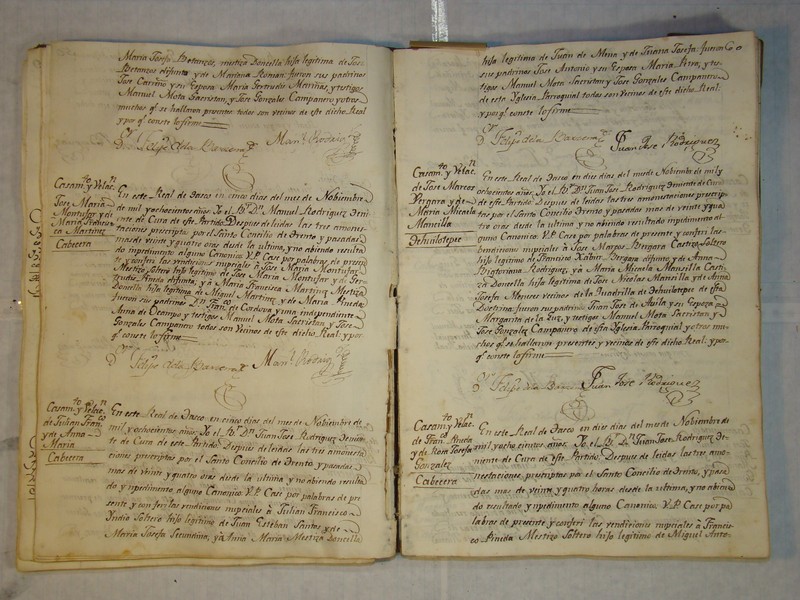 Maria Josefa Betanzos, mestiza Doncella hija legitima de Jose
Betanzos difunto y de Mariana Roman: fueron sus padrinos
Jose Carriño y su Esposa Maria Gertrudis Mariñas, y testigos
Manuel Mota Sacristan, y Jose Gonzales Campanero y otros
muchos qe. se hallaron presentes todos son vecinos de este dicho Real:
y por qe. conste lo firmé
Man.l Rodrig.z
Casam.to y Velac.n
Jose Maria
Montufar y de
Maria Francisca
Martinez
Cabecera
En este Real de Tasco en cinco dias del mes de Nobiembre
de mil y ochocientos años, Yo el Br. Dn. Manuel Rodriguez Teni
ente de Cura de este Partido. Despues de leidas las tres amones
taciones prescriptas por el Santo Concilio de Trento, y pasadas
mas de veinte y quatro oras desde la ultima, y no abiendo resulta
do inpedimento alguno Canonico V.P. Case por palabras de presen
te y conferi las vendiciones nupciales à Jose Maria Montufar
Mestizo Soltero hijo legitimo de Jose Maria Montufar y de Ger
trudis Pineda difunta, y à Maria Francisca Martinez Mestiza
Doncella hija legitima de Manuel Martinez, y de Maria Pineda:
fueron sus padrinos Dn. Fran.co de Cordova y
Anna de Ocampo y testigos Manuel Mota Sacristan y Jose
Gonzales Campanero todos son Vecinos de este dicho Real: y por
qe. conste lo firmé
Man.l Rodrig.z
Casam.to y Velac.n
de Julian Fran.co
y de Anna
Maria
Cabecera
En este Real de Tasco en cinco dias del mes de Nobiembre de
mil, y ochocientos años: Yo el Br. Dn. Juan Jose Rodriguez Tenien
te de Cura de este Partido. Despues de leidas las tres amonesta
ciones prescriptas por el Santo Concilio de Trento, y pasadas
mas de veinte y quatro oras desde la ultima y no abiendo resulta
do ynpedimento alguno Canonico V.P. Case por palabras de pre
sente y conferi las vendiciones nupciales à Julian Francisco
Yndio Soltero hijo legitimo de Juan Esteban Santos y de
Maria Josefa Secundina, y à Anna Maria Mestiza Doncella
hija legitima de Juan de Mesa y de Josefa: fueron
sus padrinos Jose Antonio y su Esposa Maria Rita, y tes
tigos Manuel Mota Sacristan y Jose Gonzales Campanero
de esta Yglesia Parroquial todos son vecinos de este dicho Real:
y por qe. conste lo firmé
Juan Jose Rodriguez
Casam.to y Velac.n
de Jose Marcos
Vergara y de
Maria Micaela
Mansilla
Tehuilotepec
En este Real de Tasco en dies dias del mes de Nobiembre de mil y
ochocientos años, Yo el Br. Dn. Juan Jose Rodriguez Teniente de Cura
de este Partido. Despues de leidas las tres amonestaciones prescrip
tas por el Santo Concilio de Trento, y pasadas mas de veinte y qua
tro oras desde la ultima y no abiendo resultado inpedimento al
guno Canonico V.P. Case por palabras de presente y conferi las
bendiciones nupciales à Jose Marcos Bergara Castizo Soltero
hijo legitimo de Francisco Xabier Bergara difunto y de Anna
Bigtoriana Rodriguez, y à Maria Micaela Mansilla Casti
za Doncella hija legitima de Jose Nicolas Mansilla y de Anna
Josefa vecinos de la Quadrilla de Tehuilotepec de esta
Doctrina: fueron sus padrinos Juan Jose de Avila y su Esposa
Margarita de la Luz, y testigos Manuel Mota Sacristan y
Jose Gonzalez Campanero de esta Yglesia Parroquial y otros mu
chos qe. se hallaron presentes y vecinos de este dicho Real: y por
qe. conste lo firmé
Juan Jose Rodriguez
Casam.to y Velac.n
de Fran.co Pineda
y de Rosa Josefa
Gonzalez
Cabecera
En este Real de Tasco en dies dias del mes de Nobiembre de
mil, y ochocientos años; Yo el Br. Dn. Juan Jose Rodriguez Te
niente de Cura de este Partido. Despues de leidas las tres amo
nestaciones, prescriptas por el Santo Concilio de Trento, y pasa
das mas de veinte y quatro horas desde la ultima, y no abien
do resultado ynpedimento alguno Canonico. V.P. Case por pa
labras de presente y conferi las vendiciones nupciales à Francis
co Pineda Mestizo Soltero hijo legitimo de Miguel Anto